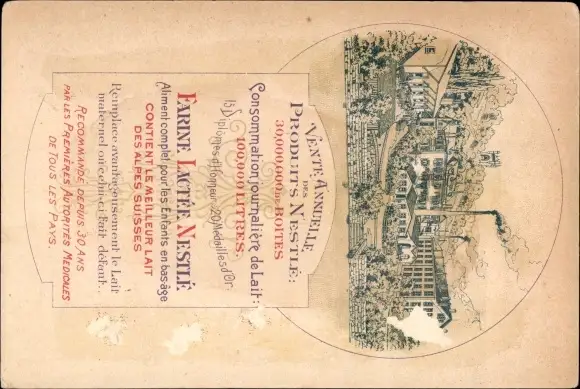 VENTE ANNUELLE
DES
PRODUITS NESTLÉ:
30,000,000 DE BOÎTES
Consommation journalière de Lait:
100,000 LITRES.
13 Diplomes d'Honneur 20 Médailles d'Or
FARINE LACTÉE NESTLÉ
Aliment complet pour les Enfants en bas âge
CONTIENT LE MEILLEUR LAIT
DES ALPES SUISSES
Remplace avantageusement le Lait
maternel ou celui-ci fait défaut.
RECOMMANDÉ DEPUIS 30 ANS
PAR LES PREMIÈRES AUTORITÉS MÉDICALES
DE TOUS LES PAYS.